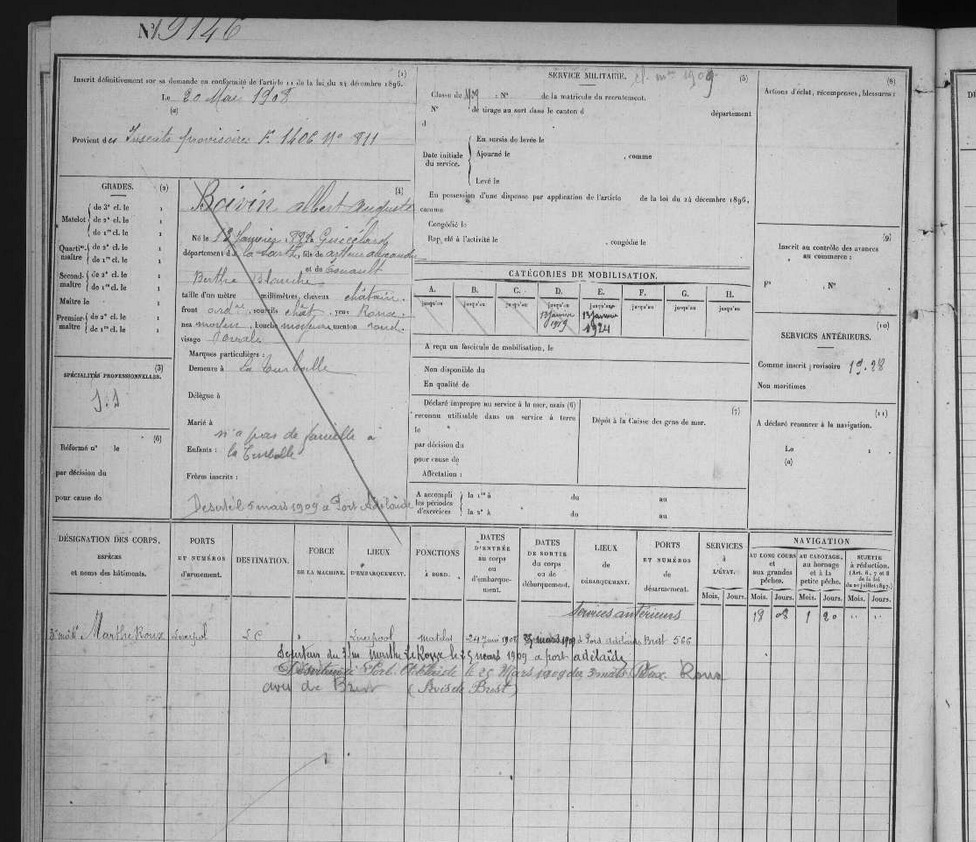 N° 9146
Inscrit définitivement sur sa demande en conformité de l'article 11 de la loi du 24 décembre 1896. (1)
Le 20 Mai 1908
(a)
Provient des Inscrits provisoires F. 1406 N° 811
GRADES. (2)
Matelot de 3e cl. le 1
de 2e cl. le 1
de 1re cl. le 1
Quartier-maître de 2e cl. le 1
de 1re cl. le 1
Second-maître de 2e cl. le 1
de 1re cl. le 1
Maître le 1
Premier-maître de 2e cl. le 1
de 1re cl. le 1
(3)
SPÉCIALITÉS PROFESSIONNELLES.
S.S
(6)
Réformé n° le
par décision du
pour cause de
(4)
Boivin Albert Auguste
Né le 13 Janvier
département d la Sarthe, fils de
et de
Berthe Blanche
taille d'un mètre millimètres, cheveux châtain
front ord.re sourcils chât. yeux Roux
nez moyen, bouche moyenne menton rond
visage ovale
Marques particulières :
Demeure à La Turballe
Délégue à
Marié à
n'a pas de famille à
Enfants : la Turballe
Frères inscrits :
Déserté le 5 mars 1909 à Port Adélaïde
SERVICE MILITAIRE. cl. m.re 1909 (5)
Classe de 1909 : N° de la matricule du recrutement.
N° de tirage au sort dans le canton d département
d
Date initiale du service. En sursis de levée le
Ajourné le , comme
Levé le
En possession d'une dispense par application de l'article de la loi du 24 décembre 1896,
comme
Congédié le
Rappelé à l'activité le , congédié le
CATÉGORIES DE MOBILISATION.
A. B. C. D. E. F. G. H.
jusqu'au jusqu'au jusqu'au jusqu'au jusqu'au jusqu'au jusqu'au jusqu'au
13 janvier 1919 13 janvier 1924
A reçu un fascicule de mobilisation, le
Non disponible du
En qualité de
Déclaré impropre au service à la mer, mais (6)
reconnu utilisable dans un service à terre
le
par décision du
pour cause de
Affectation :
(7)
Dépôt à la Caisse des gens de mer.
A accompli les périodes d'exercices la 1re à du au
la 2e à du au
(8)
Actions d'éclat, récompenses, blessures :
(9)
Inscrit au contrôle des avances
au commerce :
F° , N°
(10)
SERVICES ANTÉRIEURS.
Comme inscrit provisoire 19.28
Non maritimes
(11)
A déclaré renoncer à la navigation.
Le 1
(a)
DÉSIGNATION DES CORPS, ESPÈCES et noms des bâtiments.
PORTS ET NUMÉROS d'armement.
DESTINATION.
FORCE DE LA MACHINE.
LIEUX D'EMBARQUEMENT.
FONCTIONS À BORD.
DATES D'ENTRÉE au corps ou d'embarquement.
DATES DE SORTIE du corps ou de débarquement.
LIEUX de DÉBARQUEMENT.
PORTS ET NUMÉROS de désarmement.
SERVICES à L'ÉTAT.
Mois. Jours.
NAVIGATION
AU LONG COURS et aux grandes pêches. Mois. Jours.
AU CABOTAGE, au bornage et à la petite pêche. Mois. Jours.
SUJETTE à réduction. (Art. 6, 7 et 8 de la loi du 20 juillet 1897.) Mois. Jours.
Services antérieurs 18 08 1 20 " "
3 mâts Marthe Roux Liverpool L C " Liverpool Matelot 24 Juin 1908 25 mars 1909 à Port Adelaide Brest 566
Déserteur du 3/m Marthe Roux le 25 mars 1909 à port adélaïde
Déserteur à Port Adelaide le 25 Mars 1909 du 3 mats Roux
avis de Brest (Avis de Brest)